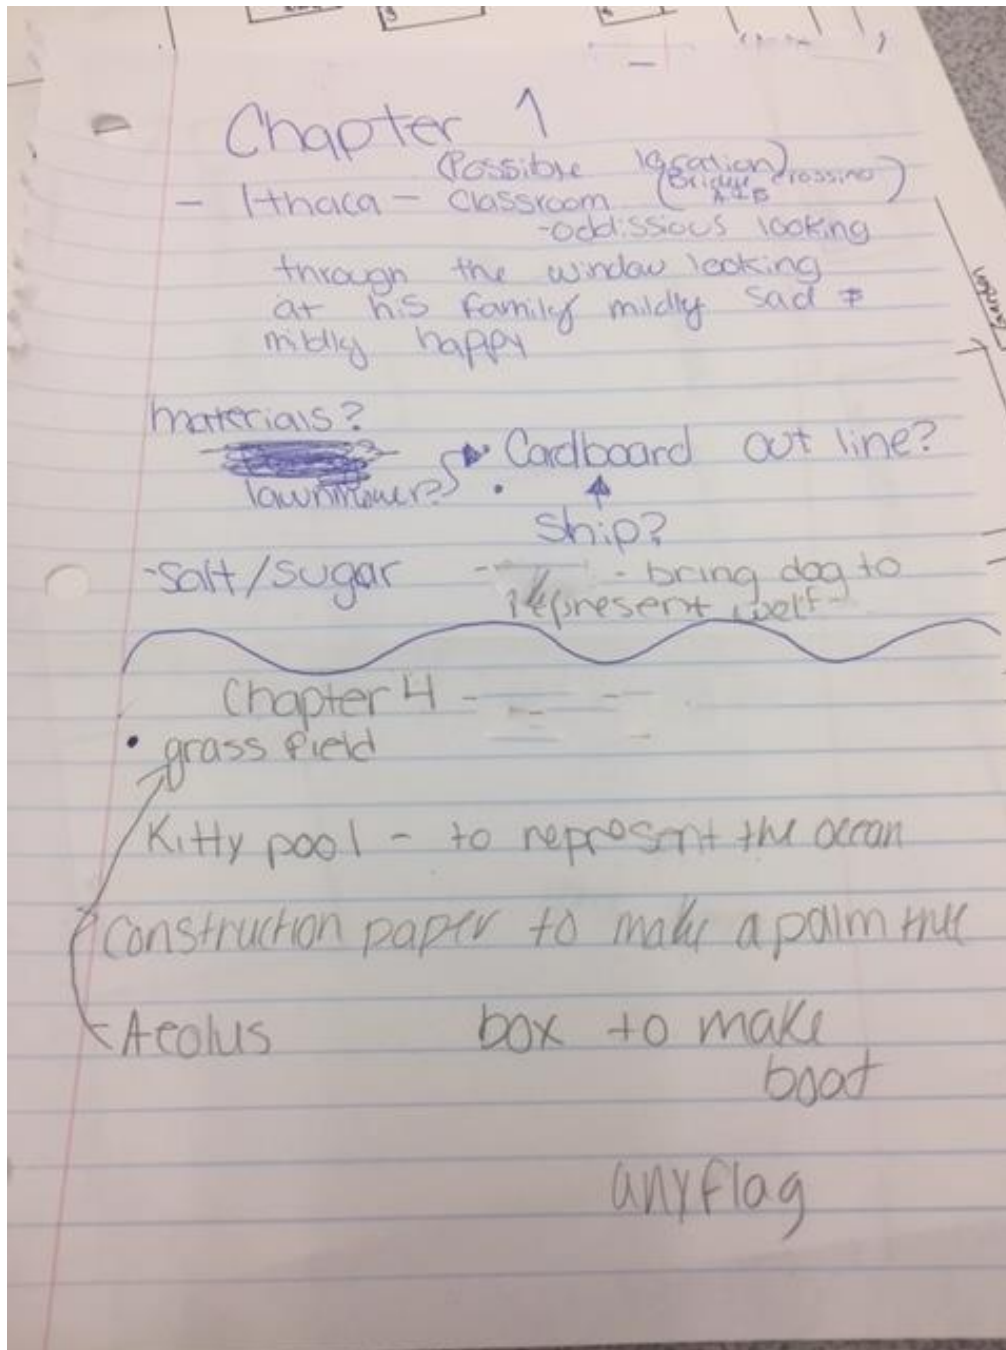 Chapter 1
(Possible location)
(Bridge crossing)
- Ithaca - Classroom
-oddissious looking
through the window looking
at his family mildly sad
mildly happy
materials?
Cardboard out line?
lawnmower?
Ship?
-salt/sugar - bring dog to
represent wolf-
Chapter 4 -
• grass field
Kitty pool - to represent the ocean
Construction paper to make a palm tree
Aeolus box to make
boat
any flag